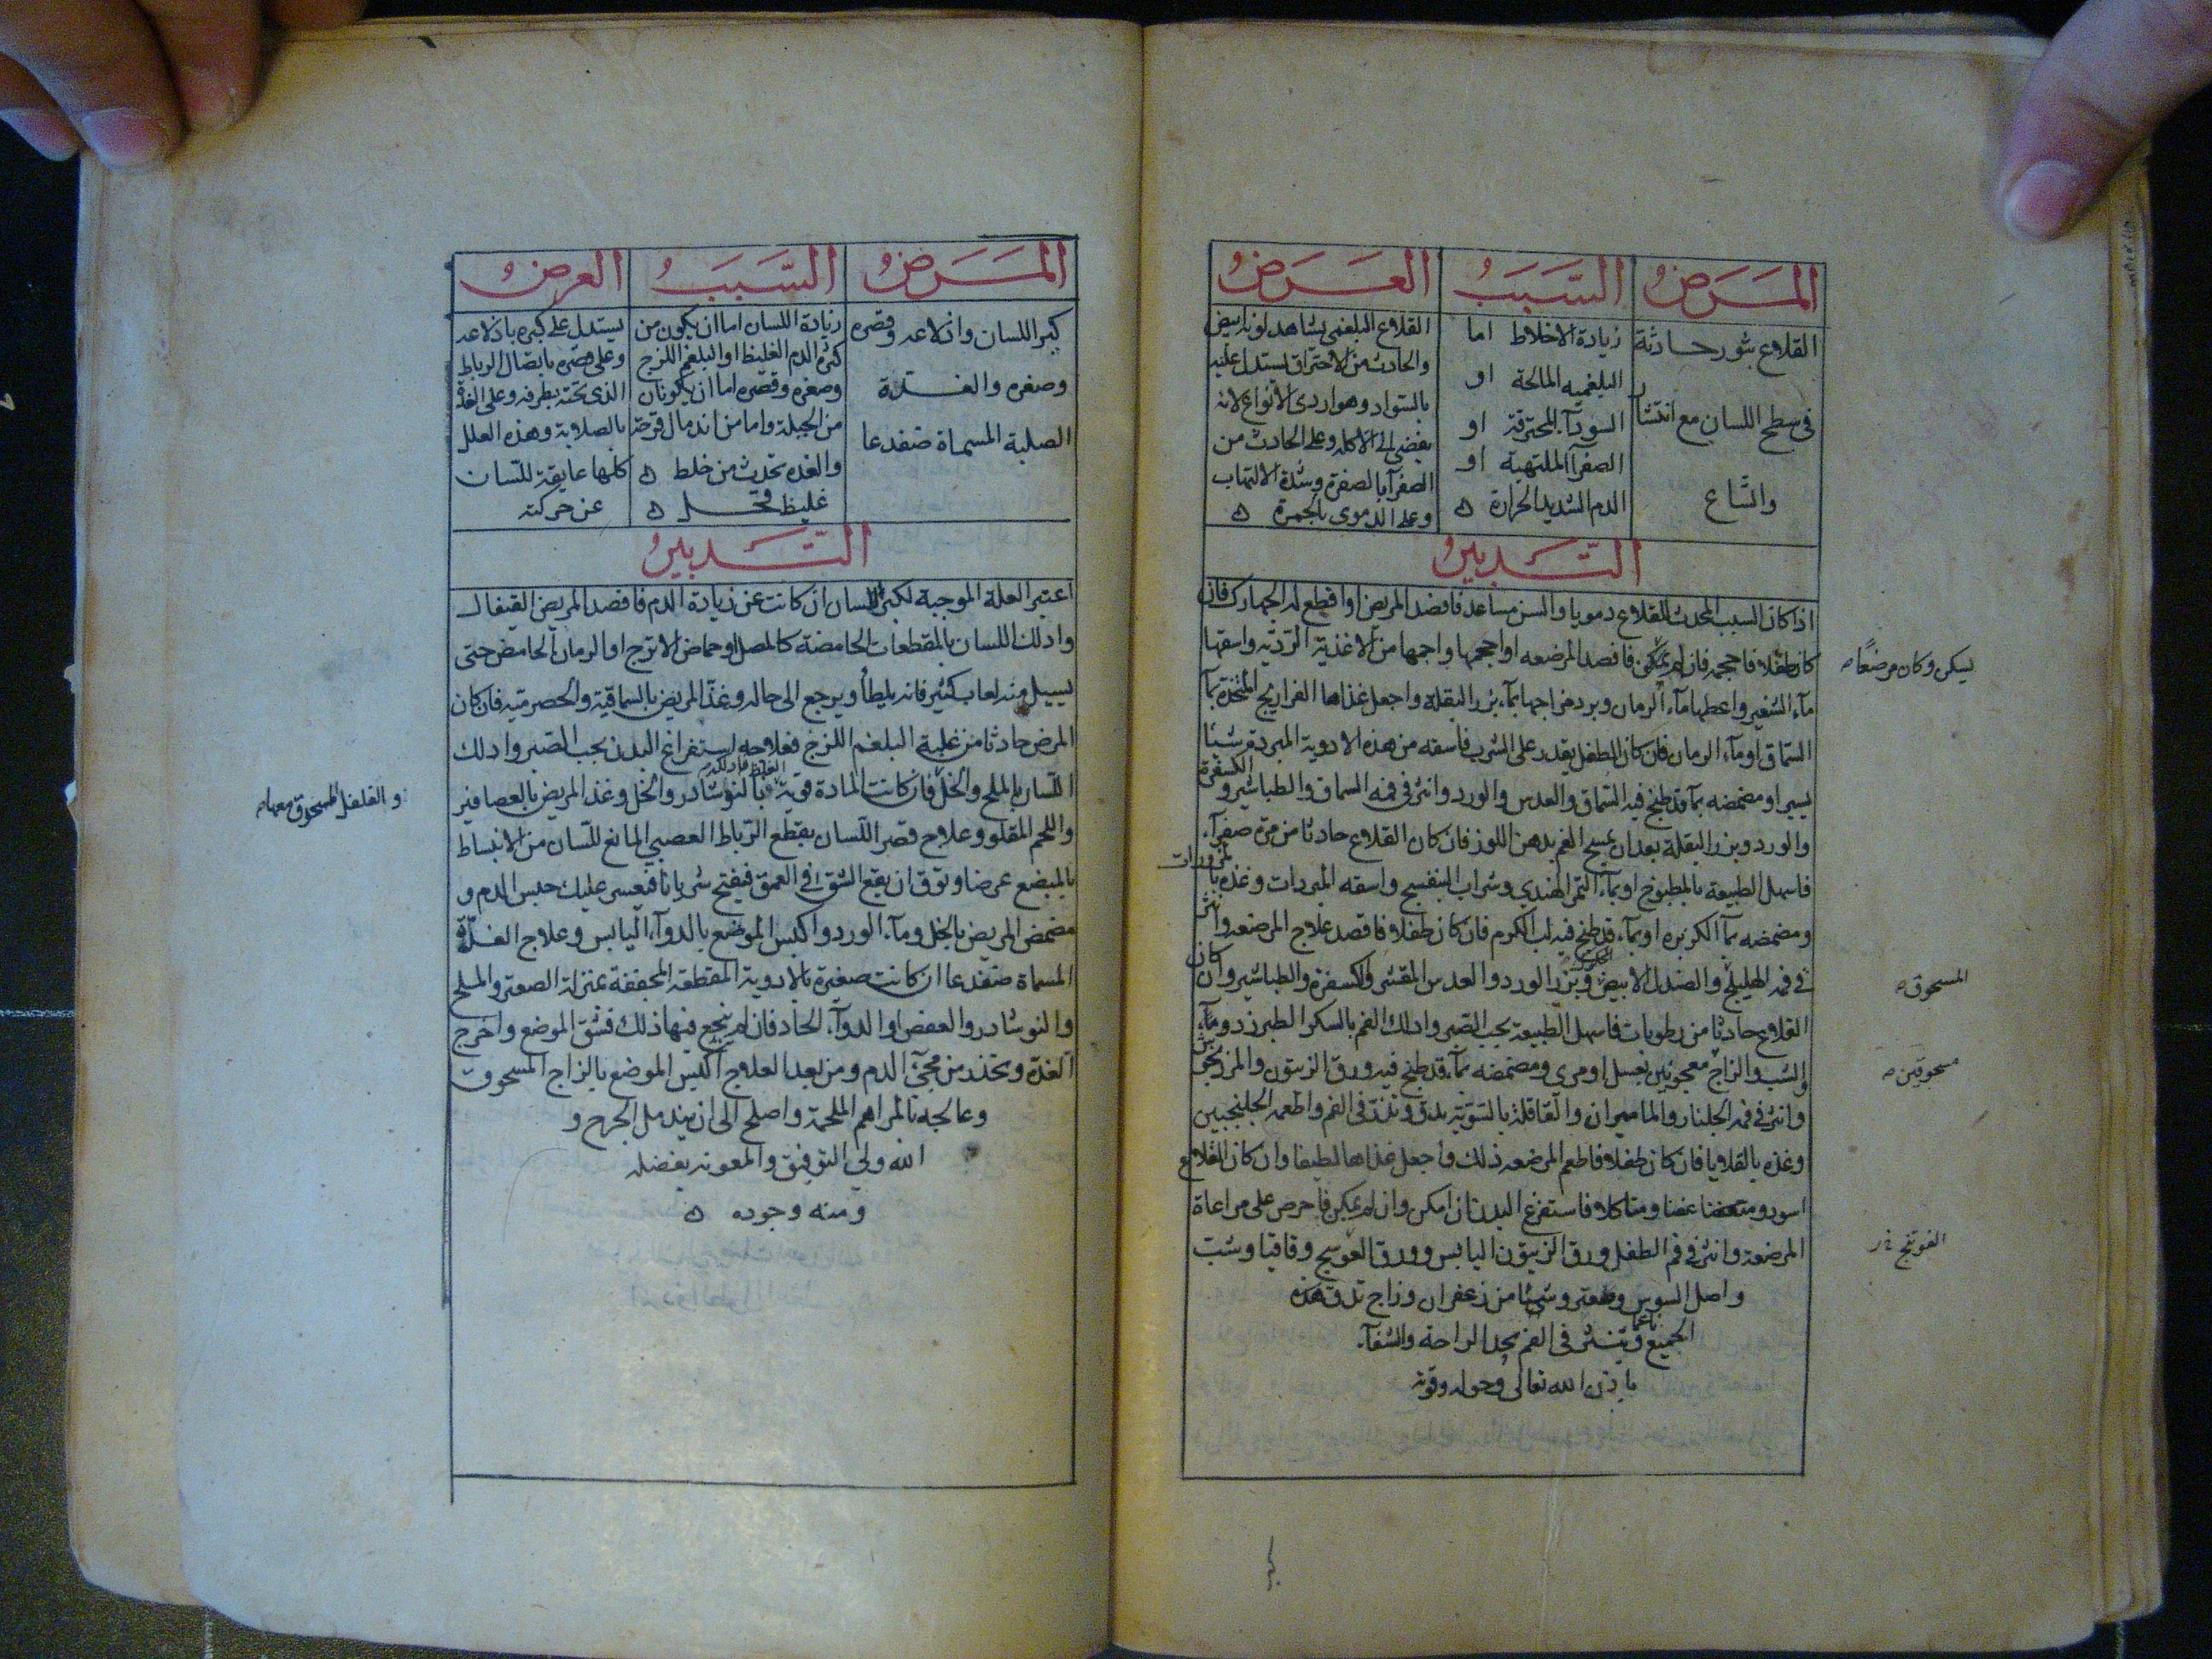 المرض
السبب
العرض
القلاع بثور حادثة
في سطح اللسان مع انتشار
واتساع
زيادة الاخلاط اما
البلغميه المالحة او
السودآء المحترقة او
الصفرآ الملتهبة او
الدم الشديد الحرارة ه
القلاع البلغمي يشاهد لونه ابيض
والحادث من الاحتراق يستدل عليه
بالسواد وهو اردى الانواع لانه
يفضي الى الاكله وعلى الحادث من
الصفرآ بالصفرة وشدة الالتهاب
وعلى الدموى بالحمرة ه
التدبير
اذا كان السبب المحدث للقلاع دمويا والسن مساعد فافصد المريض او اقطع له الجهارك فان
كان طفلا فاحجمه فان لم يمكن فافصد المرضعه او احجمها واحمها من الاغذية الرديه واسقها
مآء الشعير واعطها مآء الرمان وبرد مزاجها بمآء بزر البقلة واجعل غذاها الفراريج المتخذة بمآ
السماق او مآء الرمان فان كان الطفل يقدر على الشرب فاسقه من هذه الادوية المبردة شيئا
يسيرا ومضمضه بمآ قد طبخ فيه السماق والعدس والورد وانثر في فمه السماق والطباشير والكسفرة
والورد وبزر البقلة بعد ان تمسح الفم بدهن اللوز فان كان القلاع حادثا من مرة صفرآء
فاسهل الطبيعة بالمطبوخ او بمآء التمر الهندي وشراب البنفسج واسقه المبردات وغذه بالمزورات
ومضمضه بمآ الكزبره او بمآء قد طبخ فيه لب الكرم فان كان طفلا فاقصد علاج المرضعه وانثر
في فمه الهليلج والصندل الابيض وبزر الورد والعدس المقشر والكسفرة والطباشير وان كان
القلاع حادثا من رطوبات فاسهل الطبيعة بحب الصبر وادلك الفم بالسكر الطبرزد ومآء
والشب والزاج معجونين بعسل او مرى ومضمضه بمآء قد طبخ فيه ورق الزيتون والمرزنجوش
وانثر في فمه الجلنار والماميران والقاقلة بالسوية يدق وتذر في الفم واطعمه الجلنجبين
وغذه بالقلايا فان كان طفلا فاطعم المرضعه ذلك واجعل غذاها لطيفا وان كان القلاع
اسود ومتعفنا عفنا ومتاكلا فاستفرغ البدن ان امكن وان لم يمكن فاحرص على مراعاة
المرضعة وانثر في فم الطفل ورق الزيتون اليابس وورق العوسج وقاقيا وشب
واصل السوس وصعتر وشيئا من زعفران وزاج تدق هذه
الجميع ناعما وتنثر في الفم يجد الراحة والشفآء
باذن الله تعالى وحوله وقوته
يسكن وكان مرضعًا ص
المسحوق ص
مسحوقين ص
المرض
السبب
العرض
كبر اللسان واندلاعه وقصره
وصغره والغدة
الصلبة المسماة ضفدعا
زيادة اللسان اما ان يكون من
كثرة الدم الغليظ او البلغم اللزج
وصغره وقصره اما ان يكونان
من الجبلة واما من اندمال قرحة
والغده تحدث من خلط ه
غليظ ه
يستدل على كبره باندلاعه
وعلى قصره باتصال الرباط
الذى تحته بطرفه وعلى الغدة
بالصلابة وهذه العلل
كلها عايقة للسان
عن حركته
التدبير
اعتبر العلة الموجبة لكبر اللسان ان كانت عن زيادة الدم فافصد المريض القيفال
وادلك اللسان بالمقطعات الحامضة كالمصل او حماض الاترج او الرمان الحامض حتى
يسيل منه لعاب كثير فانه يلطأ ويرجع الى حاله وغذ المريض بالسماقية والحصرميه فان كان
المرض حادثا من غلبة البلغم اللزج فعلاجه استفراغ البدن بحب الصبر وادلك
اللسان بالملح والخل فان كانت المادة قوية فبالنوشادر والخل وغذ المريض بالعصافير
واللحم المقلو وعلاج قصر اللسان بقطع الرباط العصبي المانع للسان من الانبساط
بالمبضع عرضا وتوق ان يقع الشق في العمق فيفتح شريانا فيعسر عليك حبس الدم و
مضمض المريض بالخل ومآء الورد واكبس الموضع بالدوآء اليابس وعلاج الغدة
المسماة ضفدعا ان كانت صغيرة بالادوية المقطعة المجففة بمنزلة الصعتر والملح
والنوشادر والعفص او الدوآء الحاد فان لم ينجع فيها ذلك فشق الموضع واخرج
الغدة وتحذر من مجئ الدم ومن بعد العلاج اكبس الموضع بالزاج المسحوق
وعالجه بالمراهم الملحمة واصلح الى ان يندمل الجرح و
الله ولي التوفيق والمعونه بفضله
ومنه وجوده ه
والفلفل المسحوق معها ص